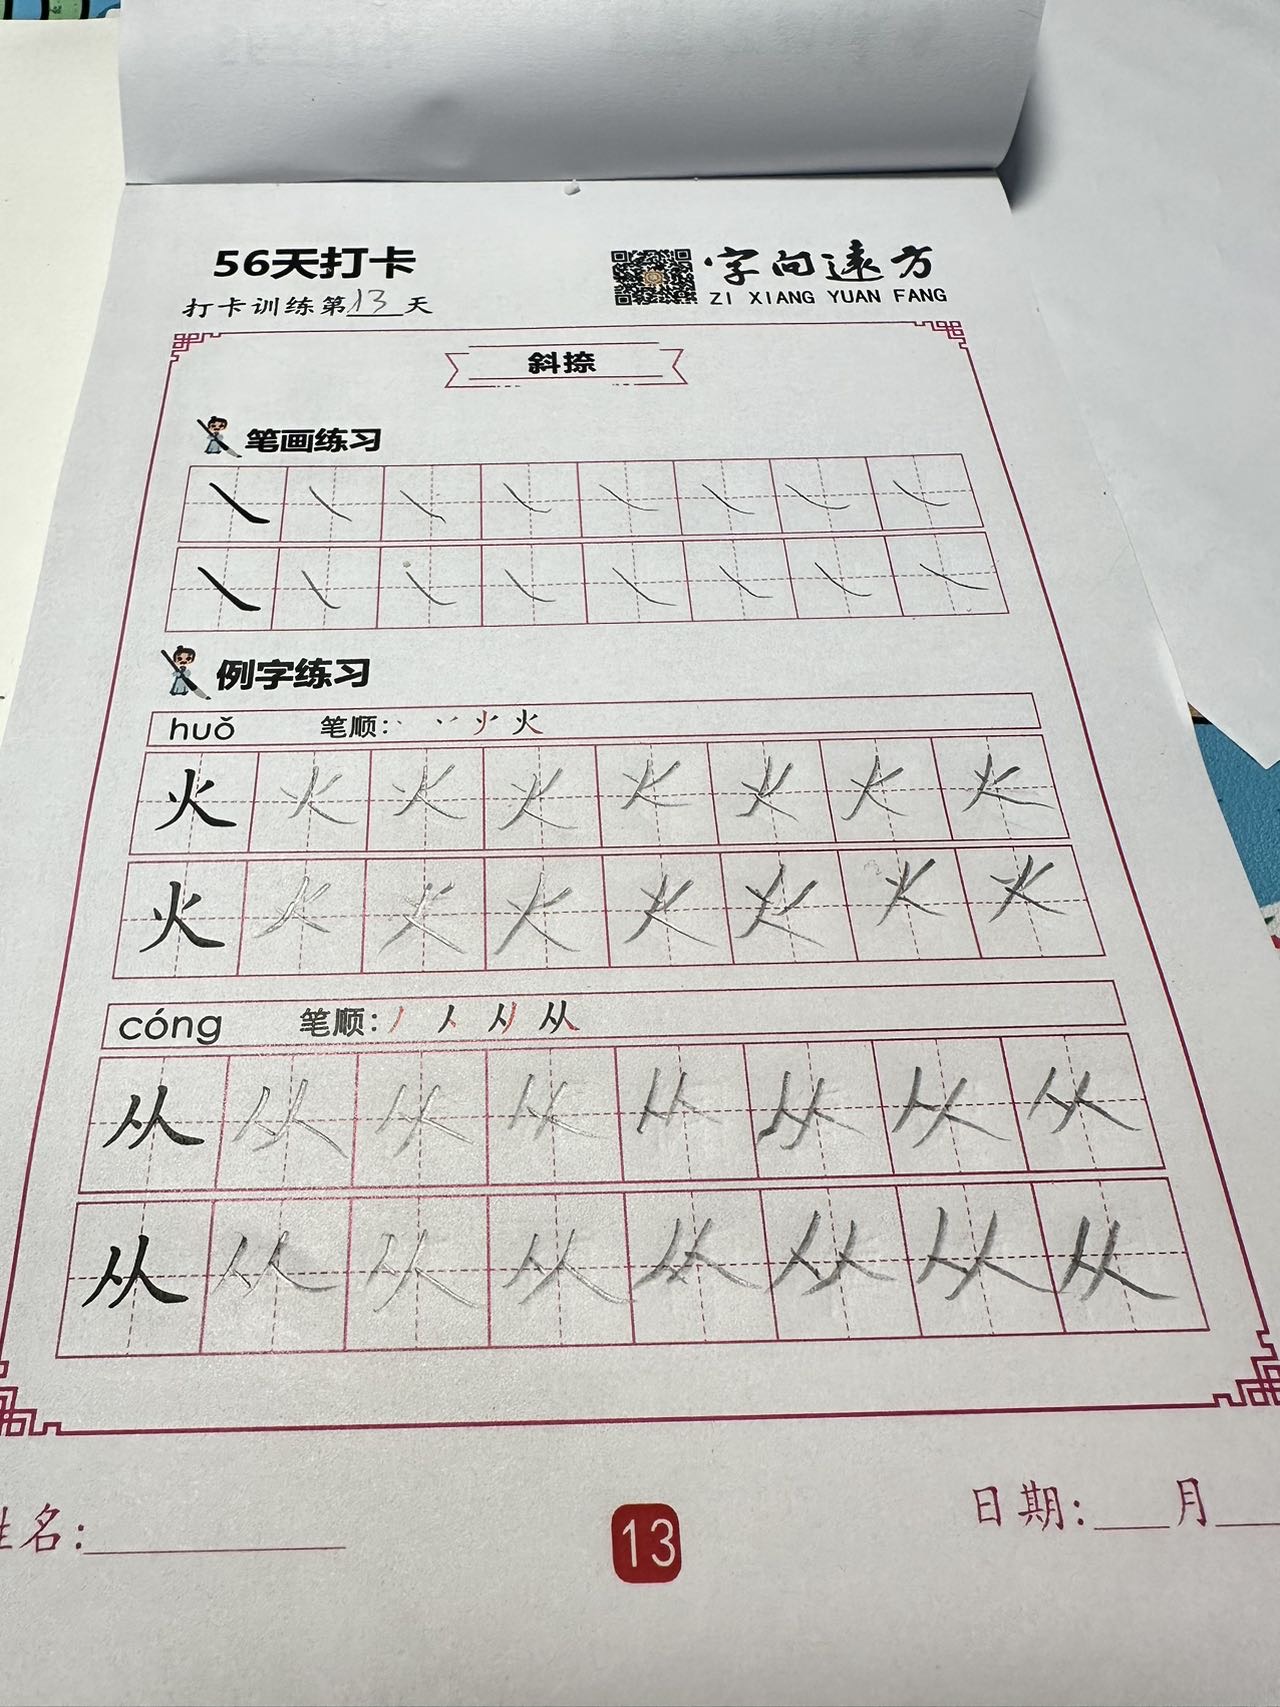 56天打卡
字向遠方
打卡训练第13天
ZI XIANG YUAN FANG
斜捺
笔画练习
㇏ ㇏ ㇏ ㇏ ㇏ ㇏ ㇏ ㇏
㇏ ㇏ ㇏ ㇏ ㇏ ㇏ ㇏ ㇏
例字练习
huǒ 笔顺: 火
火 火 火 火 火 火 火 火
火 火 火 火 火 火 火 火
cóng 笔顺: 丿 人 从
从 从 从 从 从 从 从 从
从 从 从 从 从 从 从 从
姓名:
13
日期: 月